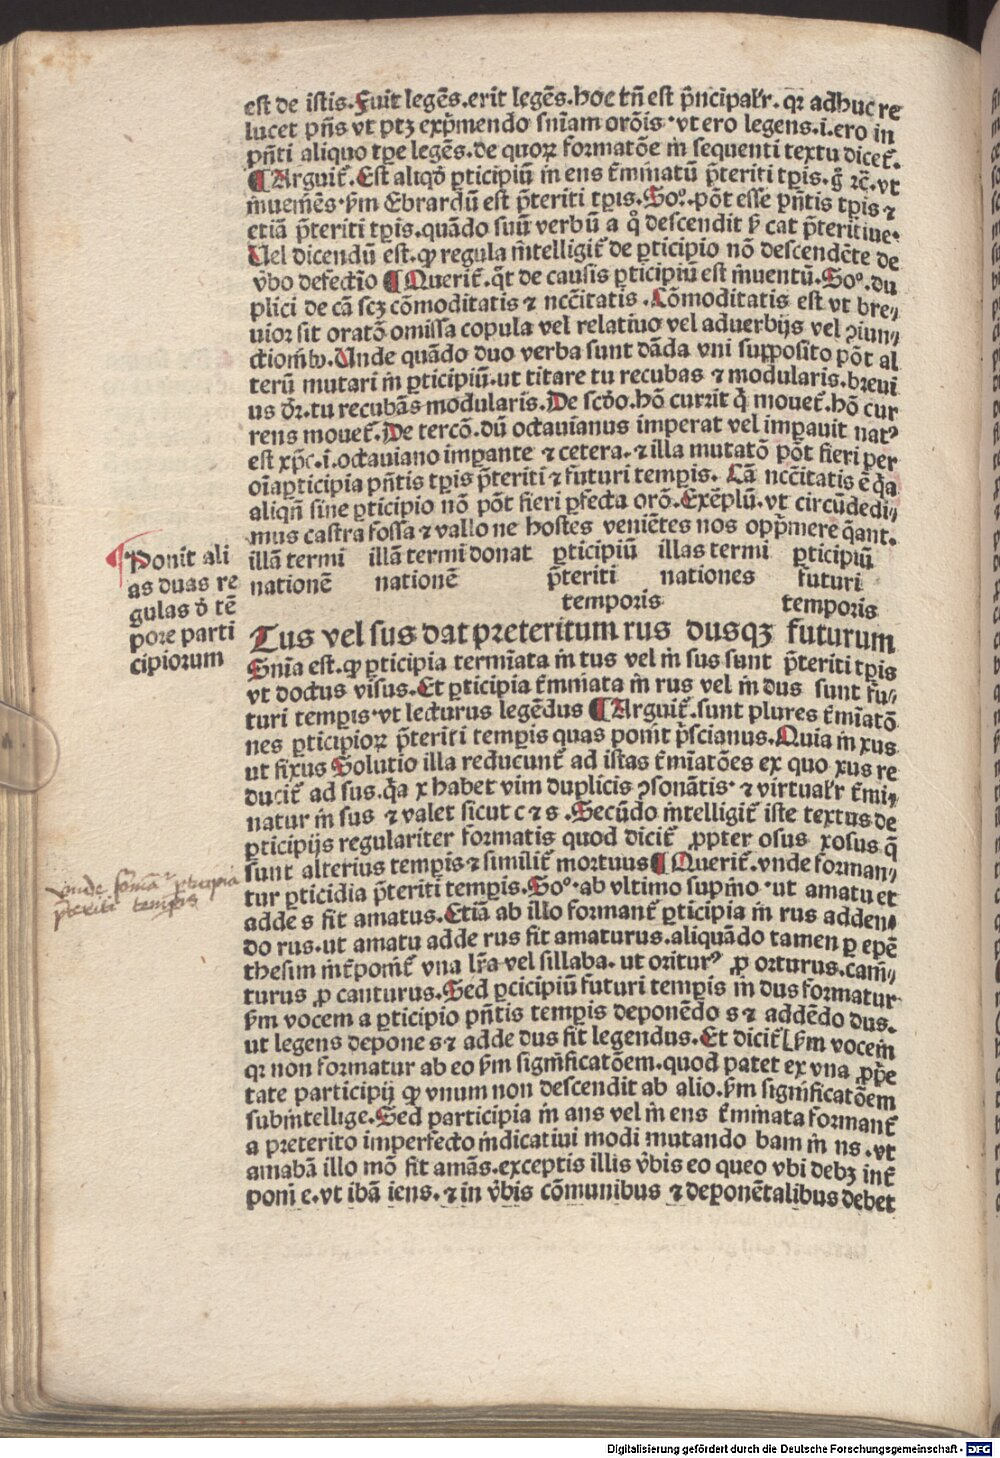 est de istis.Fuit legēs.erit legēs.hoc tn̄ est p̄ncipalr̄.qꝛ adhuc re
lucet pn̄s vt ptꝫ exp̄mendo sniam orōis.vt ero legens.i.ero in
pn̄ti aliquo tpe legēs.de quoꝝ formatōe in sequenti textu dicet̄.
¶Arguit̄.Est aliqd̄ ꝑticipiū in ens t̄minatū p̄teriti tꝑis.ḡ ⁊c̄.vt
inuemēs.ẜm Ebrardū est p̄teriti tꝑis.Soº.pōt esse pn̄tis tꝑis ⁊
etiā p̄teriti tꝑis.quādo suū verbū a qͦ descendit ẜ cat p̄teritiue.
Uel dicendū est.ꝙ regula intelligit̄ de ꝑticipio nō descendēte de
v̄bo defectio ¶Querit̄.qͣt de causis ꝑticipiū est inuentū.Soº.du
plici de cā scꝫ cōmoditatis ⁊ ncc̄itatis.Cōmoditatis est vt bre⸗
uior sit oratō omissa copula vel relatiuo vel aduerbijs vel ꝯiun⸗
ctionibꝰ.Unde quādo duo verba sunt dāda vni supposito pōt al
terū mutari in ꝑticipiū.ut titare tu recubas ⁊ modularis.breui
us dr̄.tu recubās modularis.De scd̄o.hō currit q̄ mouet̄.hō cur
rens mouet̄.De tercō.dū octauianus imperat vel imꝑauit natꝰ
est xp̄c.i.octauiano imꝑante ⁊ cetera.⁊ illa mutatō pōt fieri per
oīa ꝑticipia pn̄tis tꝑis p̄teriti ⁊ futuri tempis. Cā ncc̄itatis ē qͣa
aliqn̄ sine ꝑticipio nō pōt fieri ꝑfecta orō.Exēplū.vt circūdedi⸗
mus castra fossa ⁊ vallo ne hostes veniētes nos opp̄mere q̄ant.
illā termi illā termi donat ꝑticipiū illas termi ꝑticipiū
nationē nationē p̄teriti nationes futuri
temporis temporis
Ponit ali
as duas re
gulas d̄ tē
pore parti
cipiorum
Tus vel sus dat preteritum rus dusqꝫ futurum
Snīa est.ꝙ ꝑticipia termīata in tus vel in sus sunt p̄teriti tꝑis
vt doctus visus.Et ꝑticipia t̄minata in rus vel in dus sunt fu⸗
turi tempis.vt lecturus legēdus ¶Arguit̄.sunt plures t̄mīatō
nes ꝑticipioꝝ p̄teriti tempis quas ponit p̄scianus.Quia in xus
ut fixus Solutio illa reducunt̄ ad istas t̄mīatōes ex quo xus re
ducit̄ ad sus.qͣa x habet vim duplicis ꝯsonātis.⁊ virtualr̄ t̄mi⸗
natur in sus ⁊ valet sicut c ⁊ s.Secūdo intelligit̄ iste textus de
ꝑticipijs regulariter formatis quod dicit̄ ꝓpter osus xosus q̄
sunt alterius tempis ⁊ similit̄ mortuus ¶Querit̄.vnde forman⸗
tur ꝑticidia p̄teriti tempis.Soº.ab vltimo supino.ut amatu et
adde s fit amatus.Etiā ab illo formant̄ ꝑticipia in rus adden⸗
do rus.ut amatu adde rus fit amaturus.aliquādo tamen ꝑ epē
thesim int̄ponit̄ vna lr̄a vel sillaba.ut oriturꝰ ꝓ orturus.cani⸗
turus ꝓ canturus.Sed ꝑcicipiū futuri tempis in dus formatur
ẜm vocem a ꝑticipio pn̄tis tempis deponēdo s ⁊ addēdo dus.
ut legens depone s ⁊ adde dus fit legendus.Et dicit̄ ẜm vocem
qꝛ non formatur ab eo ẜm significatōem.quod patet ex vna ꝓp̄e
tate participij ꝙ vnum non descendit ab alio.ẜm significatōem
subintellige.Sed participia in ans vel in ens t̄minata formant̄
a preterito imperfecto indicatiui modi mutando bam in ns.vt
amabā illo mō fit amās.exceptis illis v̄bis eo queo vbi debꝫ int̄
poni e.vt ibā iens.⁊ in v̄bis cōmunibus ⁊ deponētalibus debet
vnde formāt ꝑticipia
p̄teriti tempis
Digitalisierung gefördert durch die Deutsche Forschungsgemeinschaft - DFG